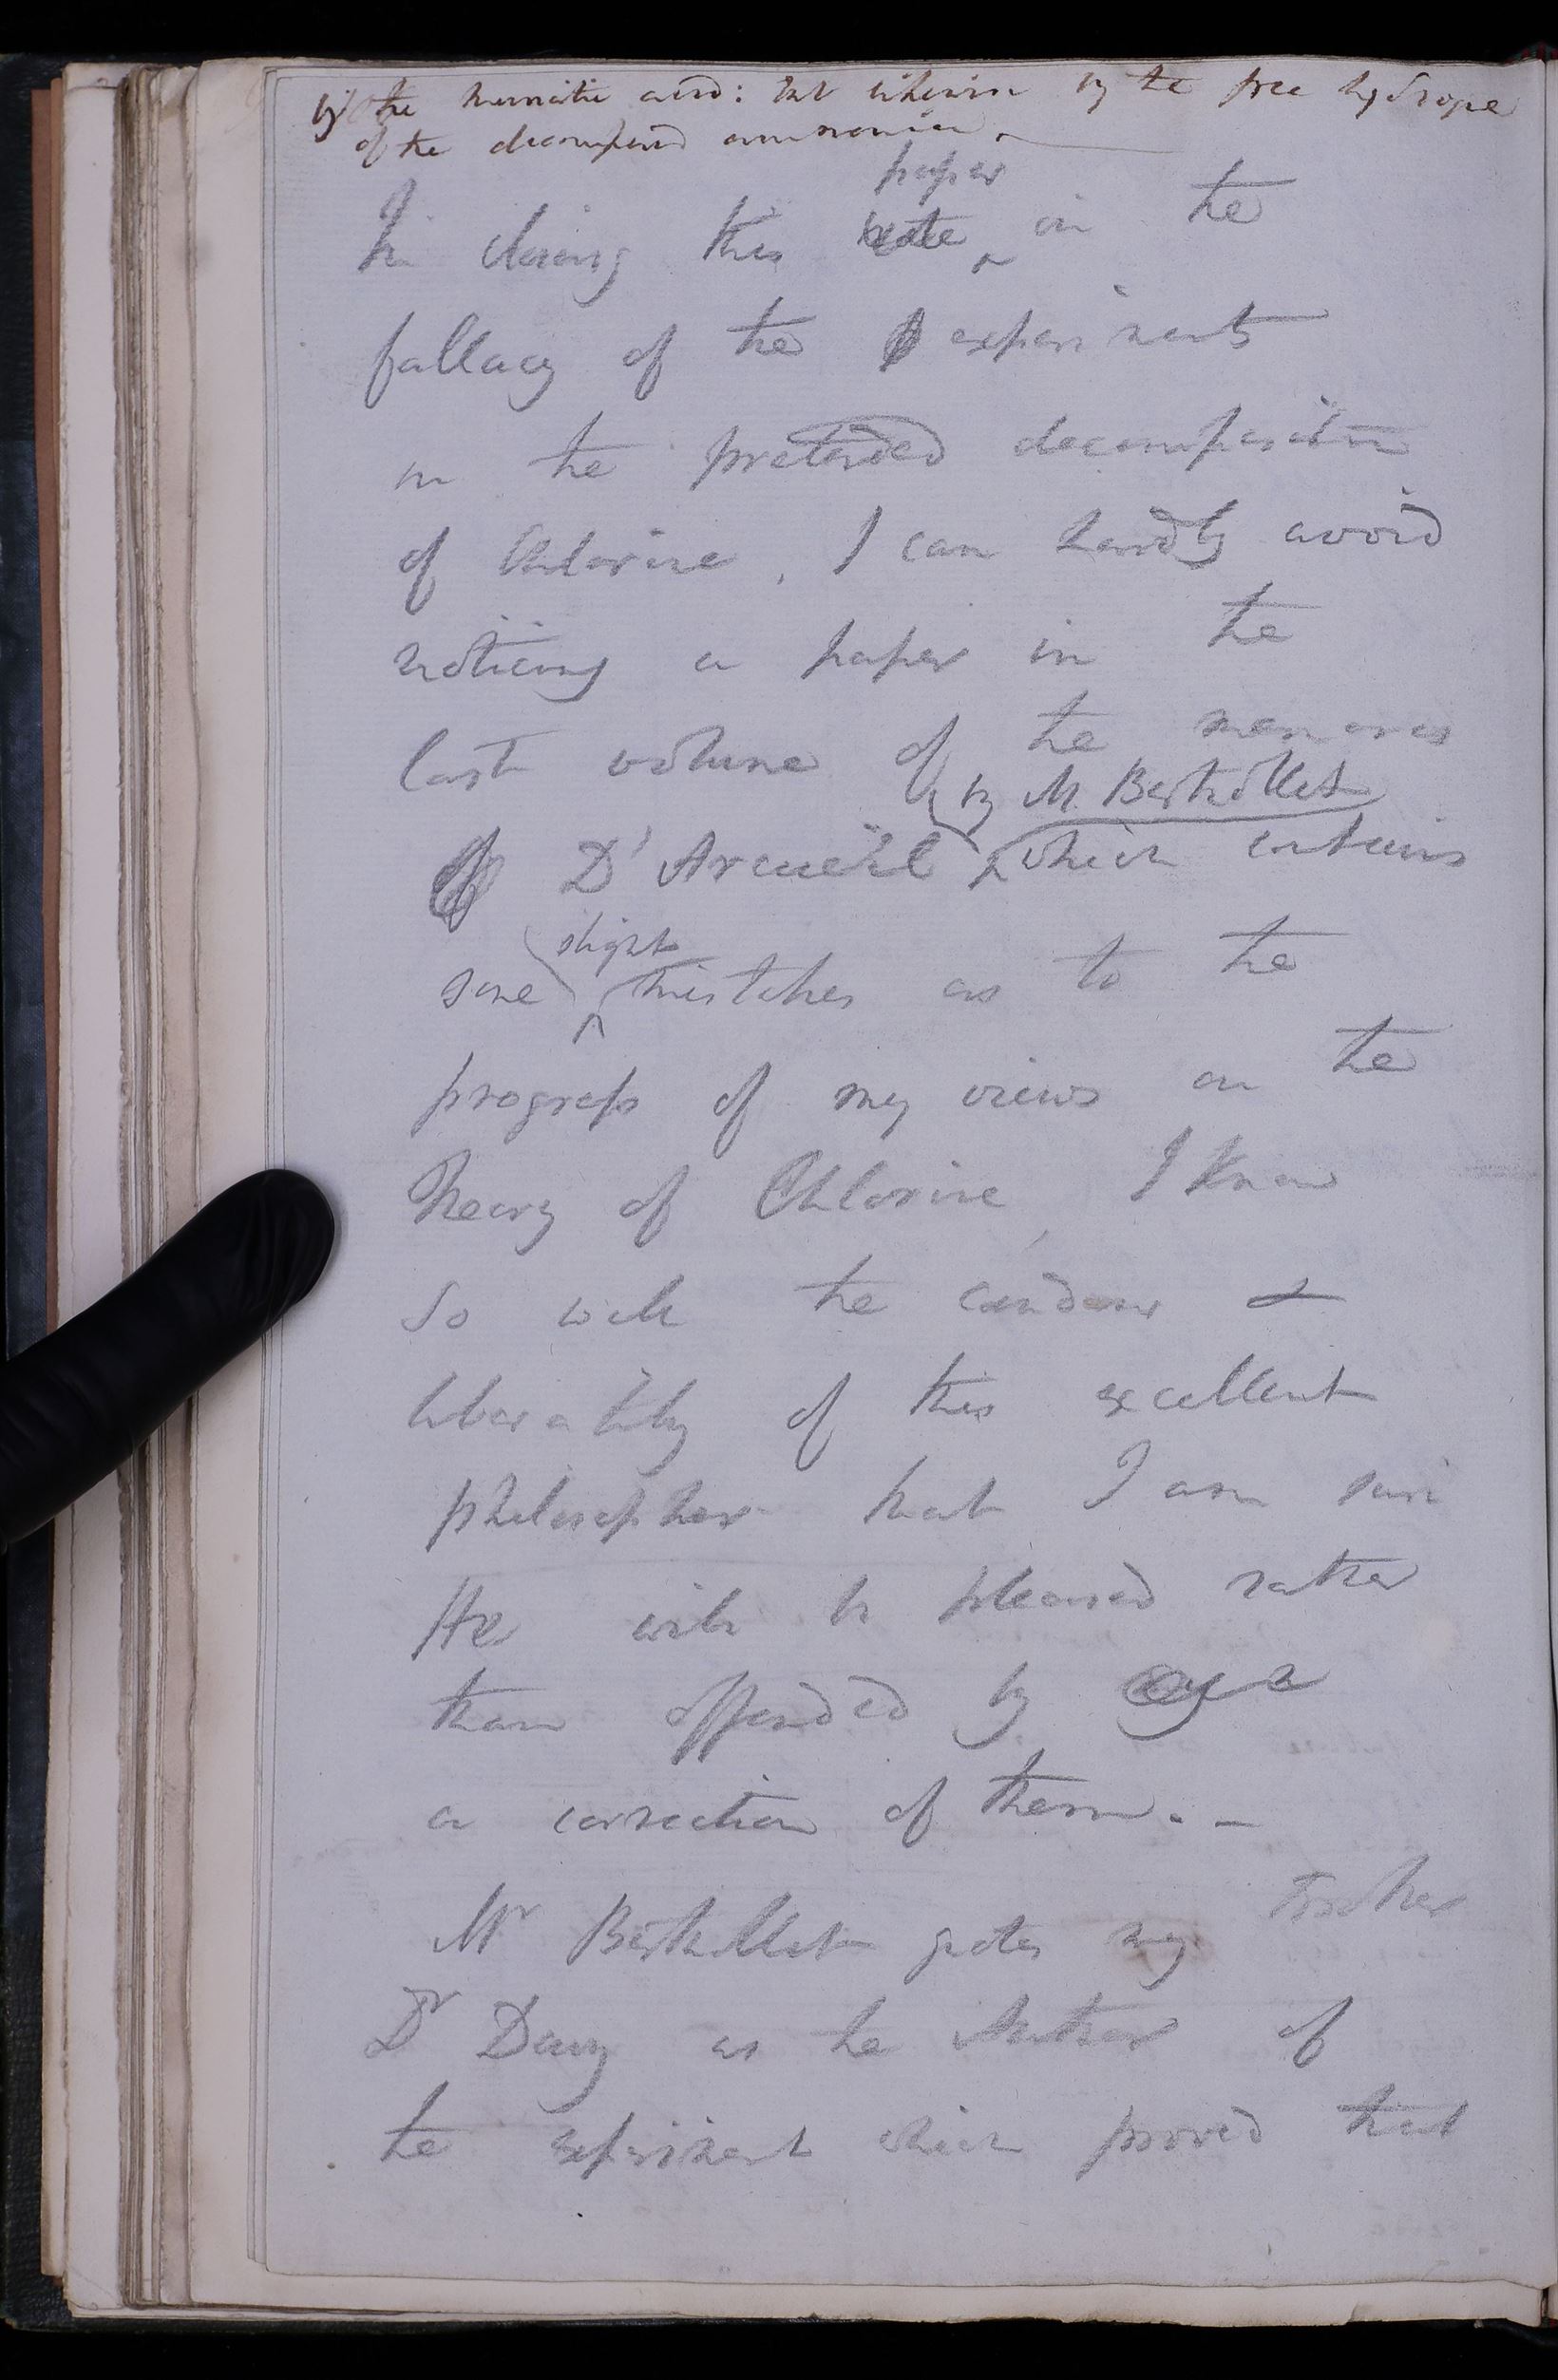 by the muriatic acid: but likewise by the free hydrogene
of the decomposed ammonia. —
paper
In closing this note on the
fallacy of the experiments
on the pretended decomposition
of Chlorine, I can hardly avoid
noticing a paper in the
last volume of the memoires
by M. Berthollet
D'Arcueil which contains
slight
some mistakes as to the
progress of my views on the
theory of Chlorine, I know
so well the candour &
liberality of this excellent
philosopher that I am sure
He will be pleased rather
than offended by a
a correction of them. –
Mr Berthollet quotes my Brother
Dr Davy as the Author of
the experiment which proved that